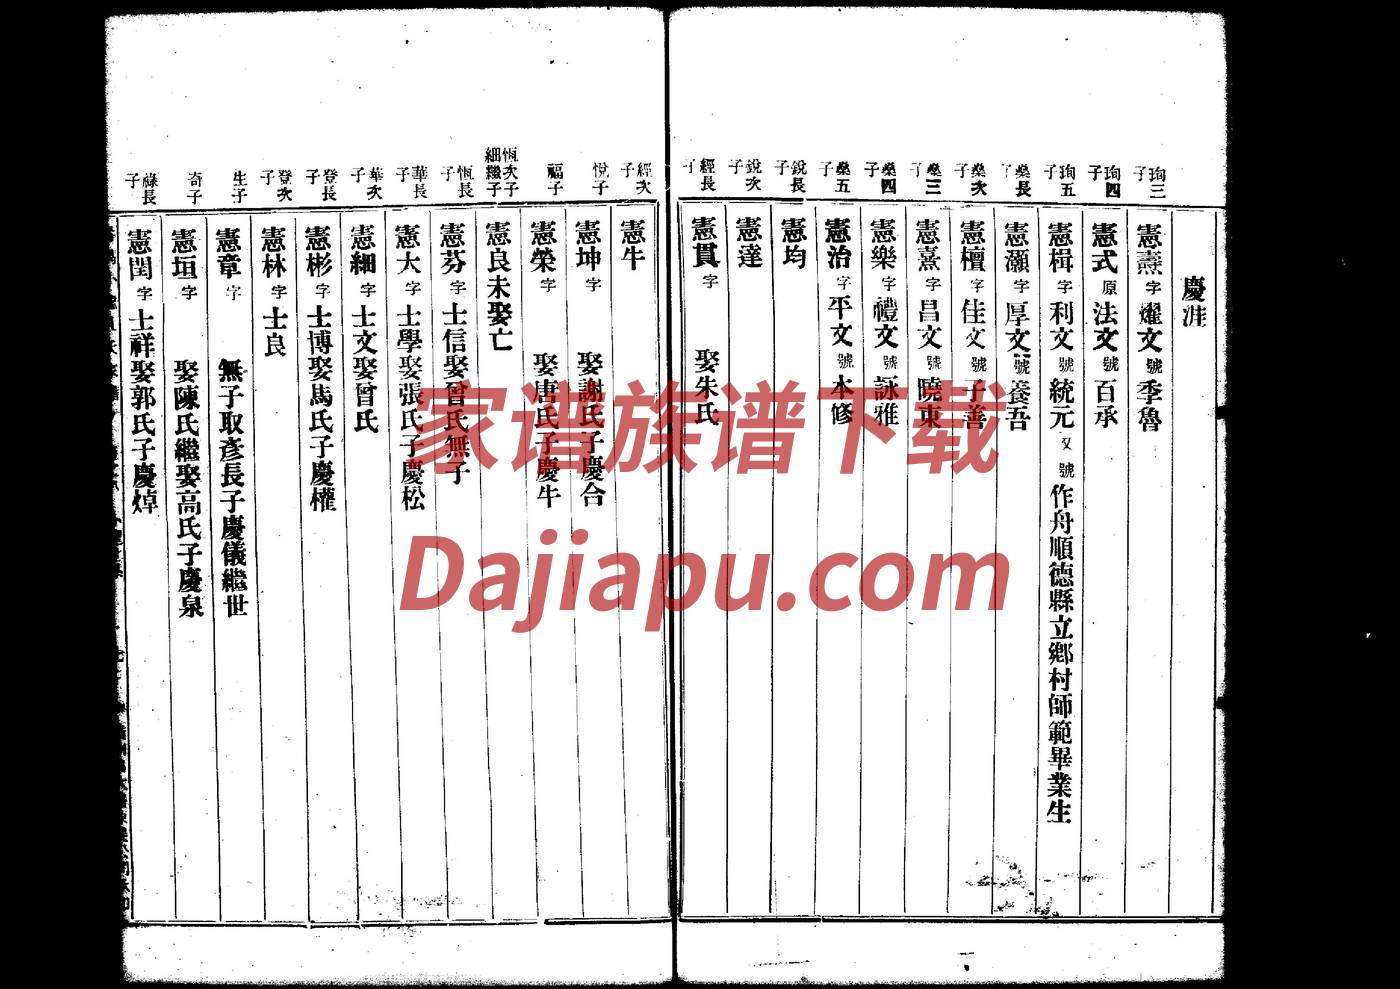 慶洼
珣三子
憲燾字燿文號季魯
珣四子
憲式原字法文號百承
珣五子
憲楫字利文號統元又號作舟順德縣立鄉村師範畢業生
燊長子
憲灝字厚文號養吾
燊次子
憲檀字佳文號子善
燊三子
憲熹字昌文號曉東
燊四子
憲樂字禮文號詠雅
燊五子
憲治字平文號本修
銳長子
憲均
銳次子
憲達
經長子
憲貫字 娶朱氏
經次子
憲牛
悅子
憲坤字 娶謝氏子慶合
福子
憲榮字 娶唐氏子慶牛
恆次子細繼子
憲良未娶亡
恆長子
憲芬字士信娶曾氏無子
華長子
憲大字士學娶張氏子慶松
華次子
憲細字士文娶曾氏
登長子
憲彬字士博娶馬氏子慶權
登次子
憲林字士良
生子
憲章字 無子取彥長子慶儀繼世
奇子
憲垣字 娶陳氏繼娶高氏子慶泉
祿長子
憲閏字士祥娶郭氏子慶焯
家谱族谱下载
Dajiapu.com